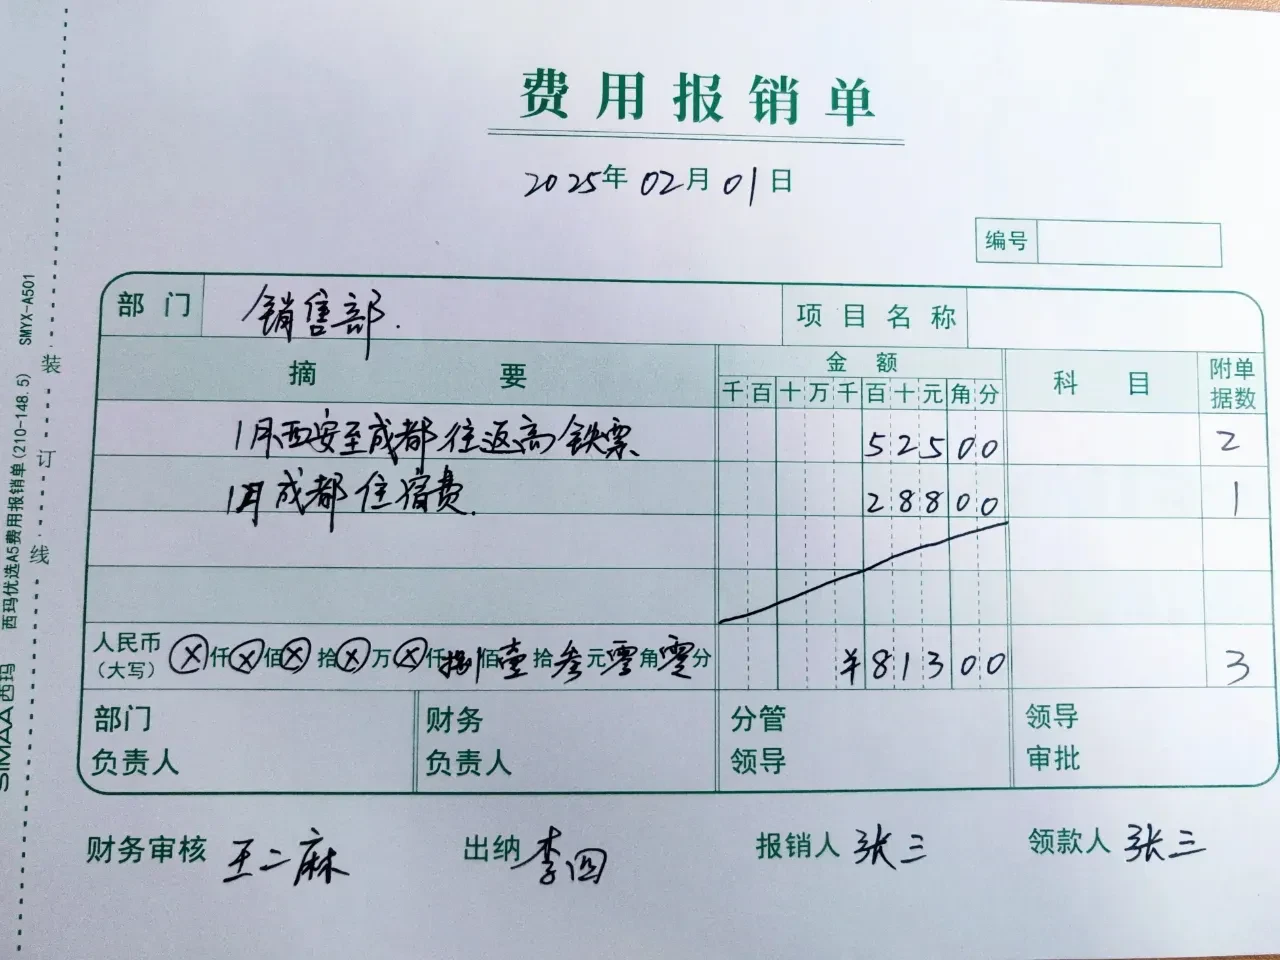 费用报销单
2025年02月01日
编号
部门 销售部. 项目名称
摘要 金额 科目 附单据数
千百十万千百十元角分
1月西安至成都往返高铁票 52500 2
1月成都住宿费. 28800 1
人民币(大写) ⓧ仟ⓧ佰ⓧ拾ⓧ万ⓧ仟捌佰壹拾叁元零角零分 ¥81300 3
部门负责人 财务负责人 分管领导 领导审批
财务审核 王二麻 出纳 李四 报销人 张三 领款人 张三
装订线
SIMAA西玛 西玛优选A5费用报销单(210-148.5) SMYX-A501